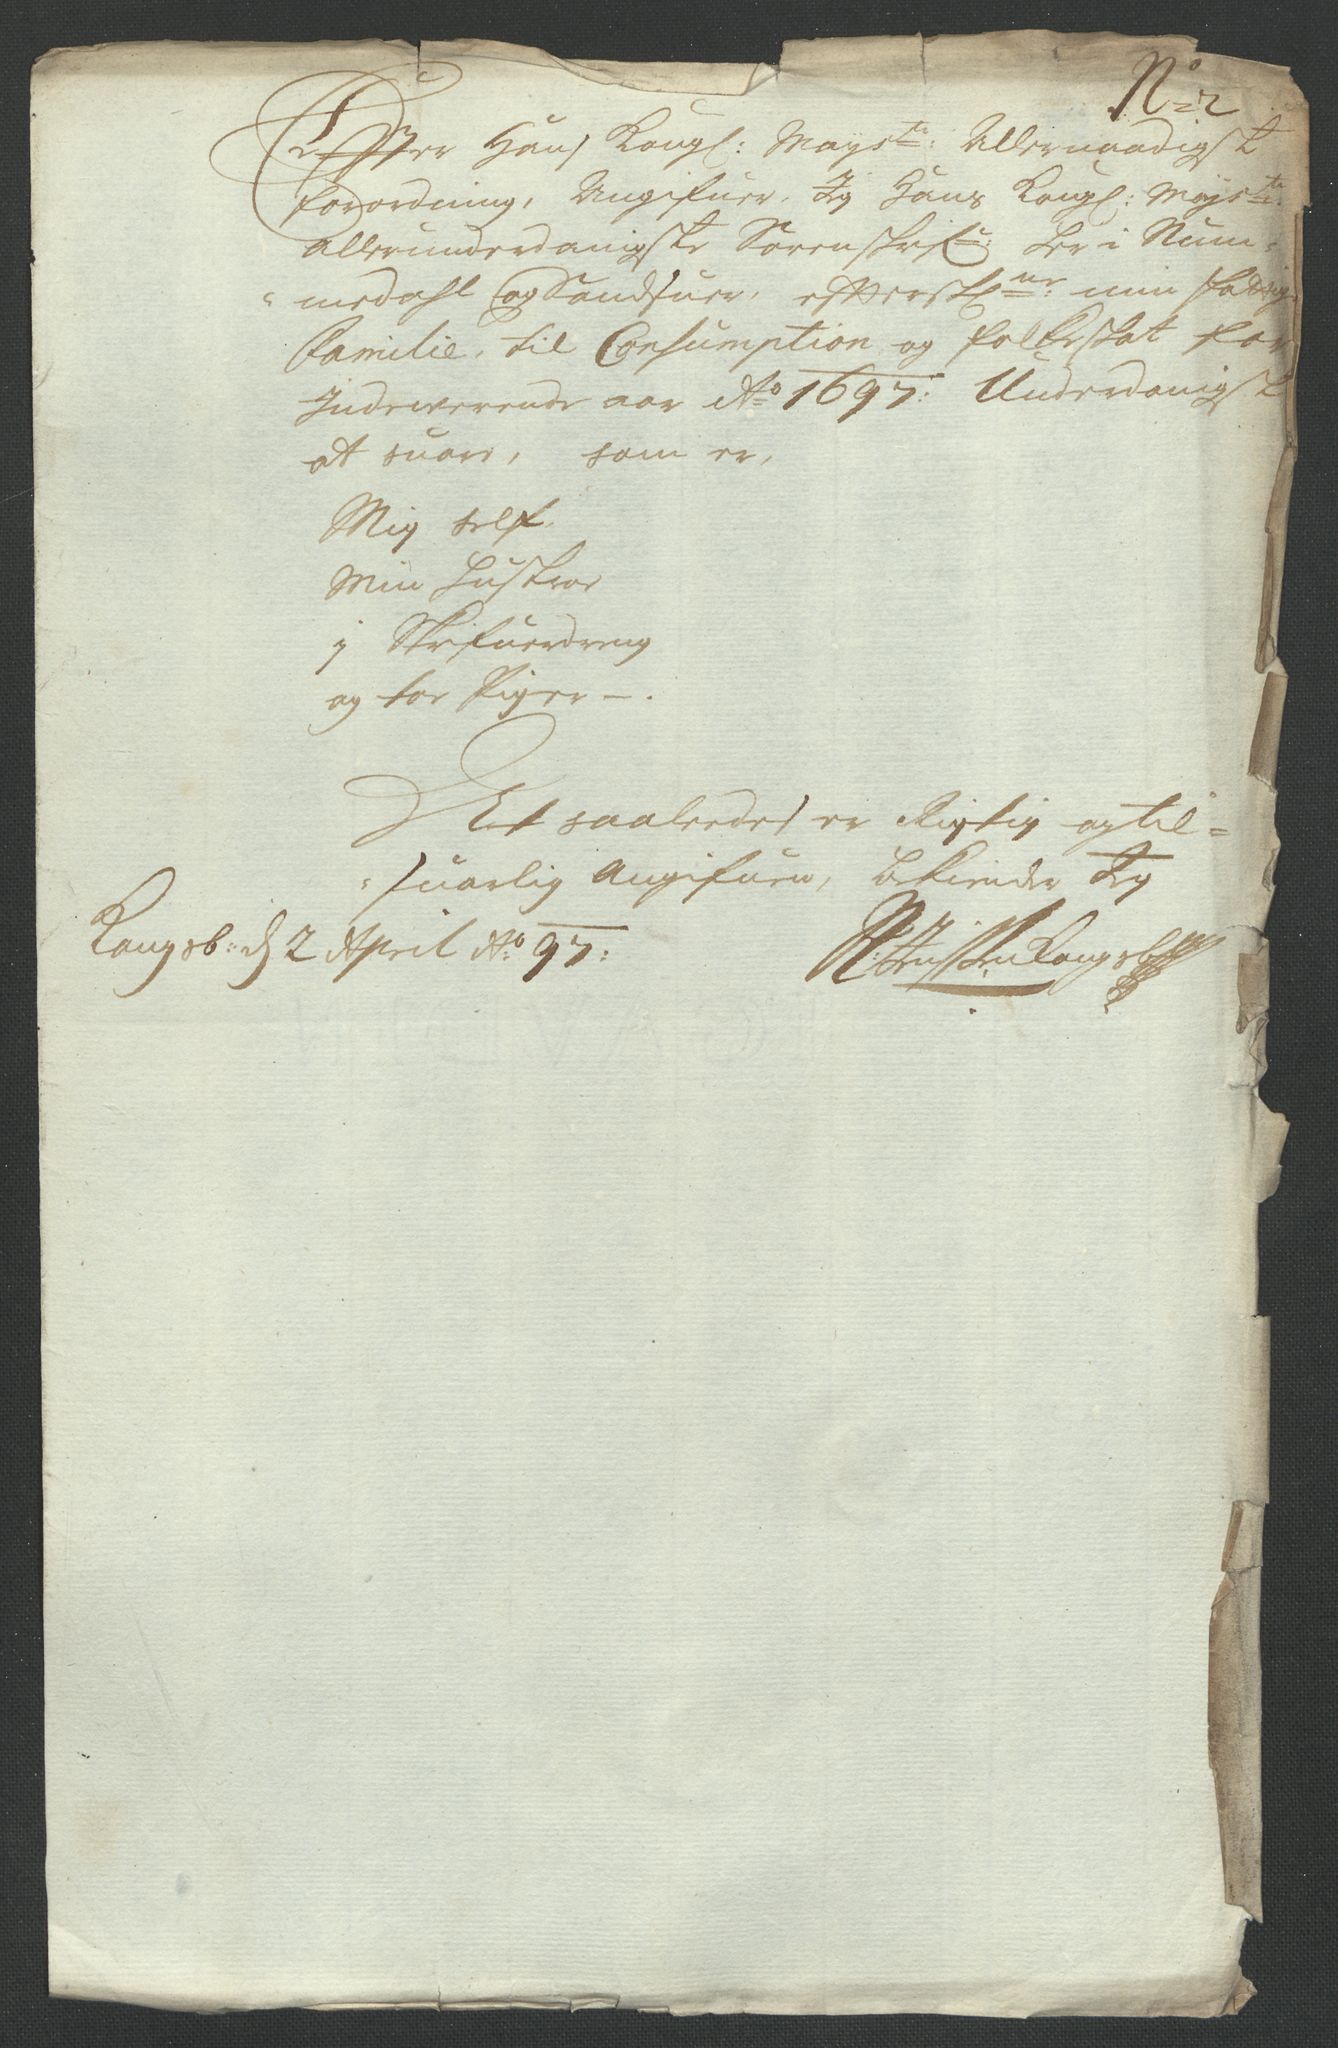 No 2
Effter Hans Kongl: Mayst: Allernaadigst
forordning, Angifuer Jeg Hans Kongl: Mayst:
allerunderdanigste Sorenskrifr: her i Num-
medahl og Sandsuer, effterskne: min fattig
Familie, til Consumption og folkeskat for
Indewerende aar Ao 1697: Underdanigst
at suare, som er,
Mig self
Min Hustroe
j Skrifuerdreng
og toe Piger -.
Det saaleedes er Rigtig og til-
suarlig Angifuen, bekiender Jeg
Kongsb: d 2 April Ao 97: